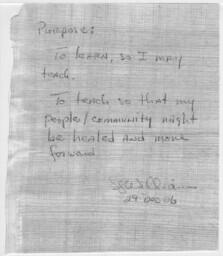 Purpose:
To learn, so I may
teach.
To teach so that my
people/community might
be healed and move
forward
29 Dec 06